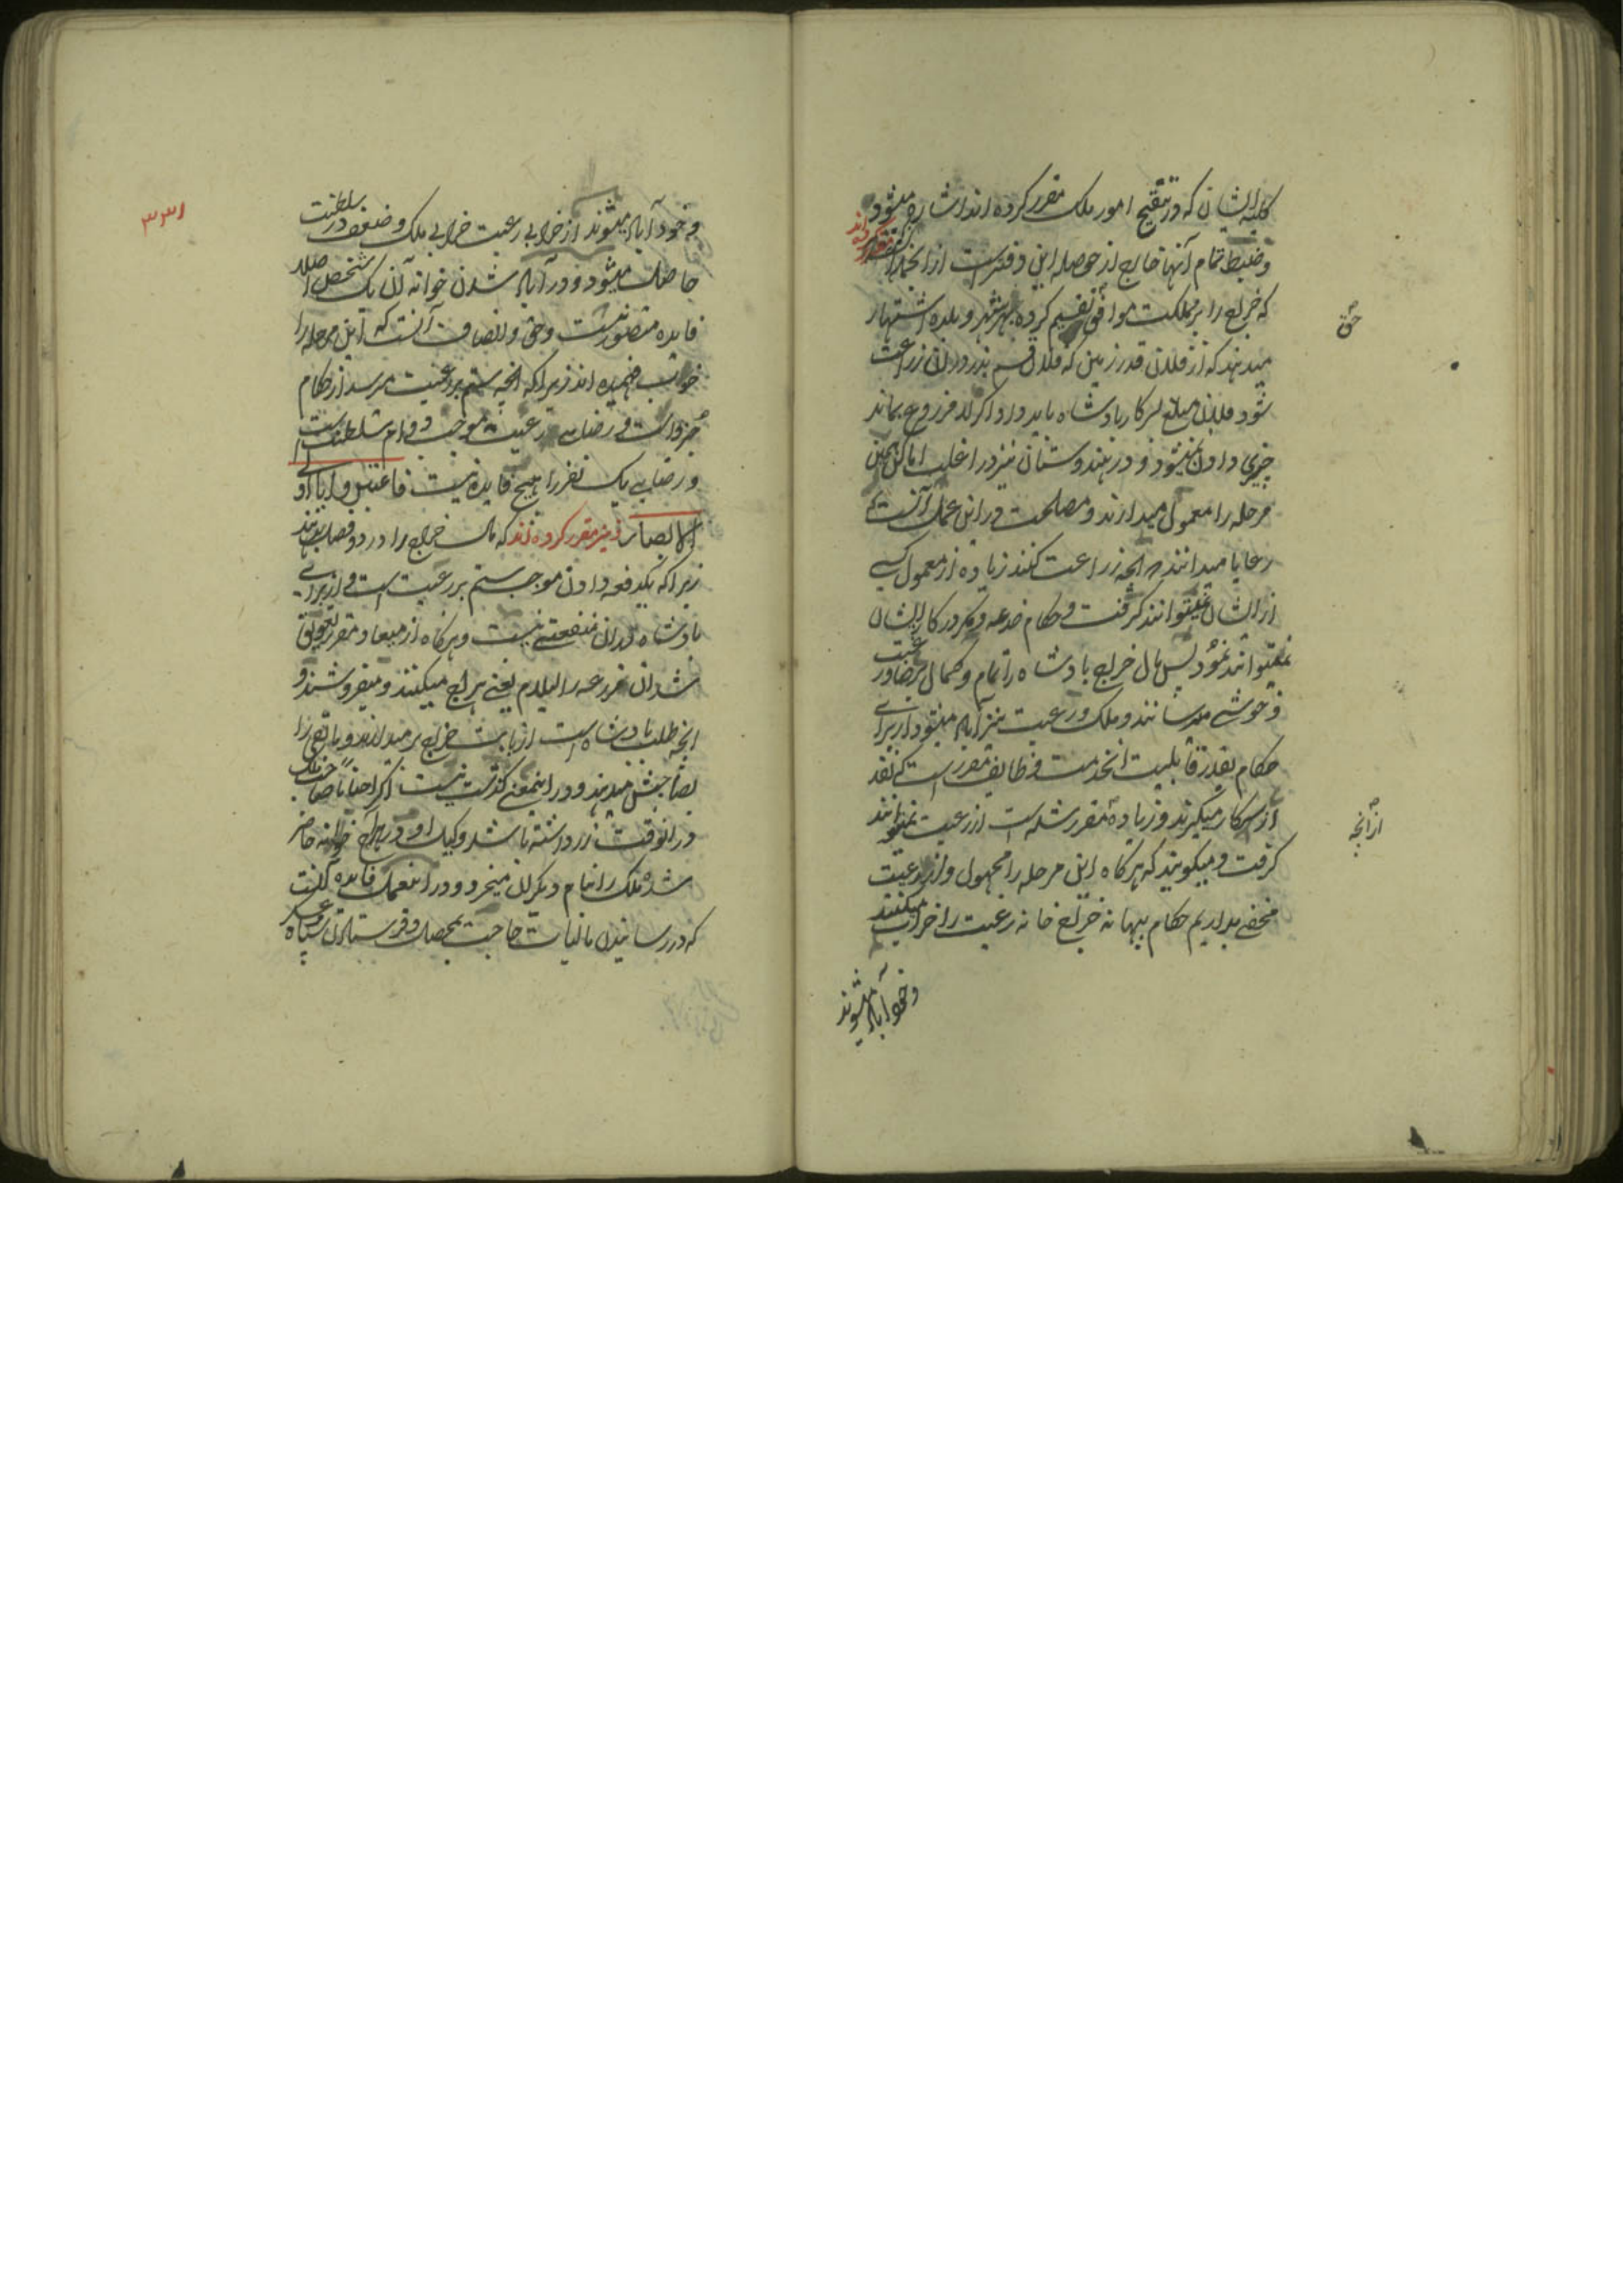 کلیه ایشان که در تنقیح امور ملک مقرر کرده اند اشاره میشود
و ضبط تمام آنها خارج از حوصله این دفتر است از انجمله
مقرر کرده اند
که خراج را بر مملکت موافق تقسیم کرده بهر شهر و بلده اشتهار
حق
میدهند که از فلان قدر زمین که فلان قسم بذر در ان زراعت
شود فلان مبلغ بسرکار پادشاه باید داد اگر لم مزروع بماند
چیزی دادن نمیشود و در هندوستان نیز در اغلب اماکن همین
مرحله را معمول میدارند و مصلحت در این عمل آنست که
رعایا میدانند انچه زراعت کنند زیاده از معمول کسی
از ایشان نمیتوانند گرفت و حکام خدعه و مکر در کار ایشان
نمیتوانند نمود پس مال خراج پادشاه را تمام و کمال برضا و رغبت
و خوشی میرسانند و ملک و رعیت نیز آباد میشود از برای
حکام بقدر قابلیت انخدمت وظایف مقرر است که نقد
از سرکار میگیرند و زیاده مقرر شده است از رعیت نمیتوانند
ازانچه
گرفت و میگویند که هرگاه این مرحله را مجهول و از رعیت
مخفی بداریم حکام ببهانه خراج خانه رعیت را خراب میکنند
و خود آباد میشوند
۳۳۱
و خود آباد میشوند از خرابی رعیت خرابی ملک و ضعف در سلطنت
حاصل میشود و در آباد شدن خوانه آن یک شخص اصلا
فایده متصور نیست و حق و انصاف آنست که این مرحله را
خوب فهمیده اند زیرا که انچه ستم بر رعیت میرسد از حکام
جزو است و رضای رعیت موجب دوام سلطنت است
و رضای یک نفر را هیچ فایده نیست فاعتبروا یا اولی
الابصار و نیز مقرر کرده اند که مال خراج را در دو فصل بدهند
زیرا که یکدفعه دادن موجب ستم بر رعیت است و از برای
پادشاه در ان منفعتی نیست و هرگاه از میعاد مقرر تعویق
شد ان مزرعه را لیلام یعنی هراج میکنند و میفروشند و
انچه طلب پادشاه است از بابت خراج بر میدارند و باقی را
بصاحبش میدهند و در اینمعنی گذشت نیست اگر احیانا صاحب ملک
در انوقت زر داشته باشد وکیل او در هراج خوانه حاضر
شده ملک را بنام دیگران میخرد و در اینعمل فایده آنست
که در رسانیدن مالیات حاجت بمحصل و فرستادن سپاه و عسکر